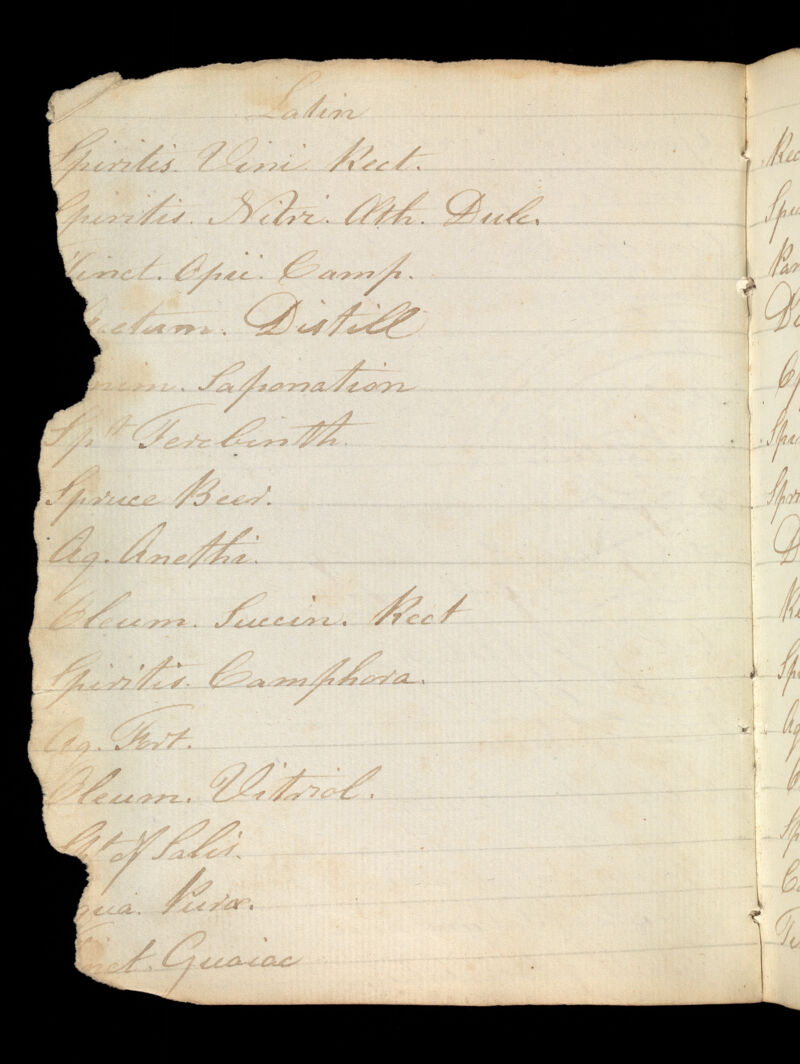 Latin
Spiritis. Vini Rect.
Spiritis. Nitri. Æth. Dulc.
Tinct. Opii. Camp.
cetum. Distill
nim. Saponation
Spt Terebinth.
Spruce Beer.
Aq. Anethi.
Oleum. Succin. Rect
Spiritis. Camphora.
Aq. Fort.
Oleum. Vitriol.
of Salis.
qua. Puræ.
nct. Guaiac